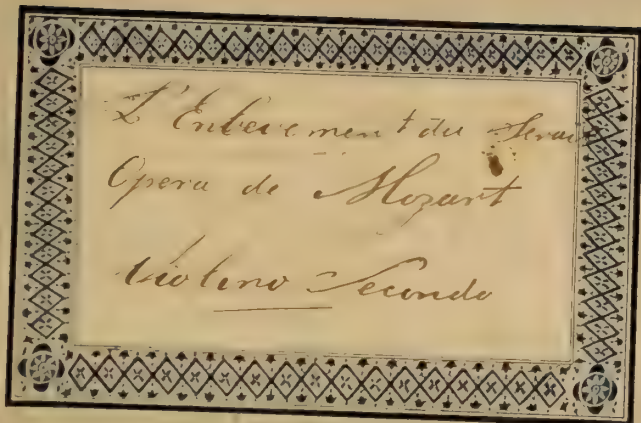 L'Enlevement du Serail
Opera de Mozart
Violino Secondo